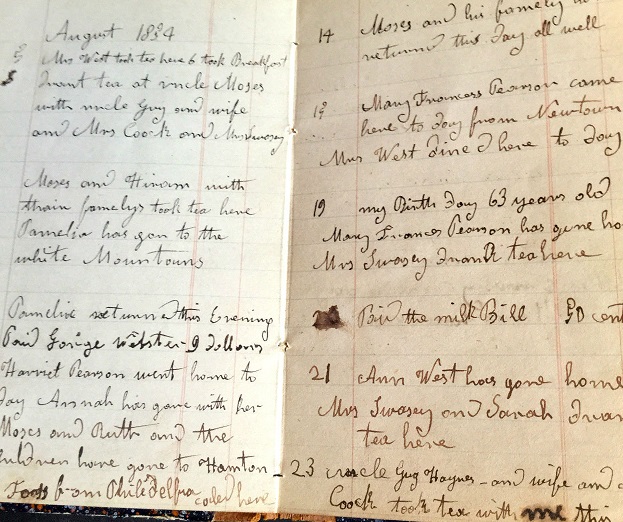 August 1884
5 Mrs West took tea here 6 took Breakfast
Drant tea at uncle Moses
with uncle Guy and wife
and Mrs Coock and Mrs Swasey
Moses and Hiram with
thair famelys took tea here
Pamelia has gon to the
white Mountouns
returned this Evening
Paid George Webster 9 dollars
Harriet Pearson went home to
day Annah has gone with her
Moses and Ruth and the
have gone to Hamton
from Philedelfra caled here
14 Moses and his famely
returned this day all well
Mary Frances Pearson came
here to day from Newtown
Mrs West dined here to day
19 my Birth day 63 years old
Mary Frances Pearson has gone
Mrs Swasey drank tea here
the milk Bill 90 cent
21 Ann West has gone home
Mrs Swasey and Sarah
tea here
23 uncle Guy Haynes and wife and
Coock took tea with me this